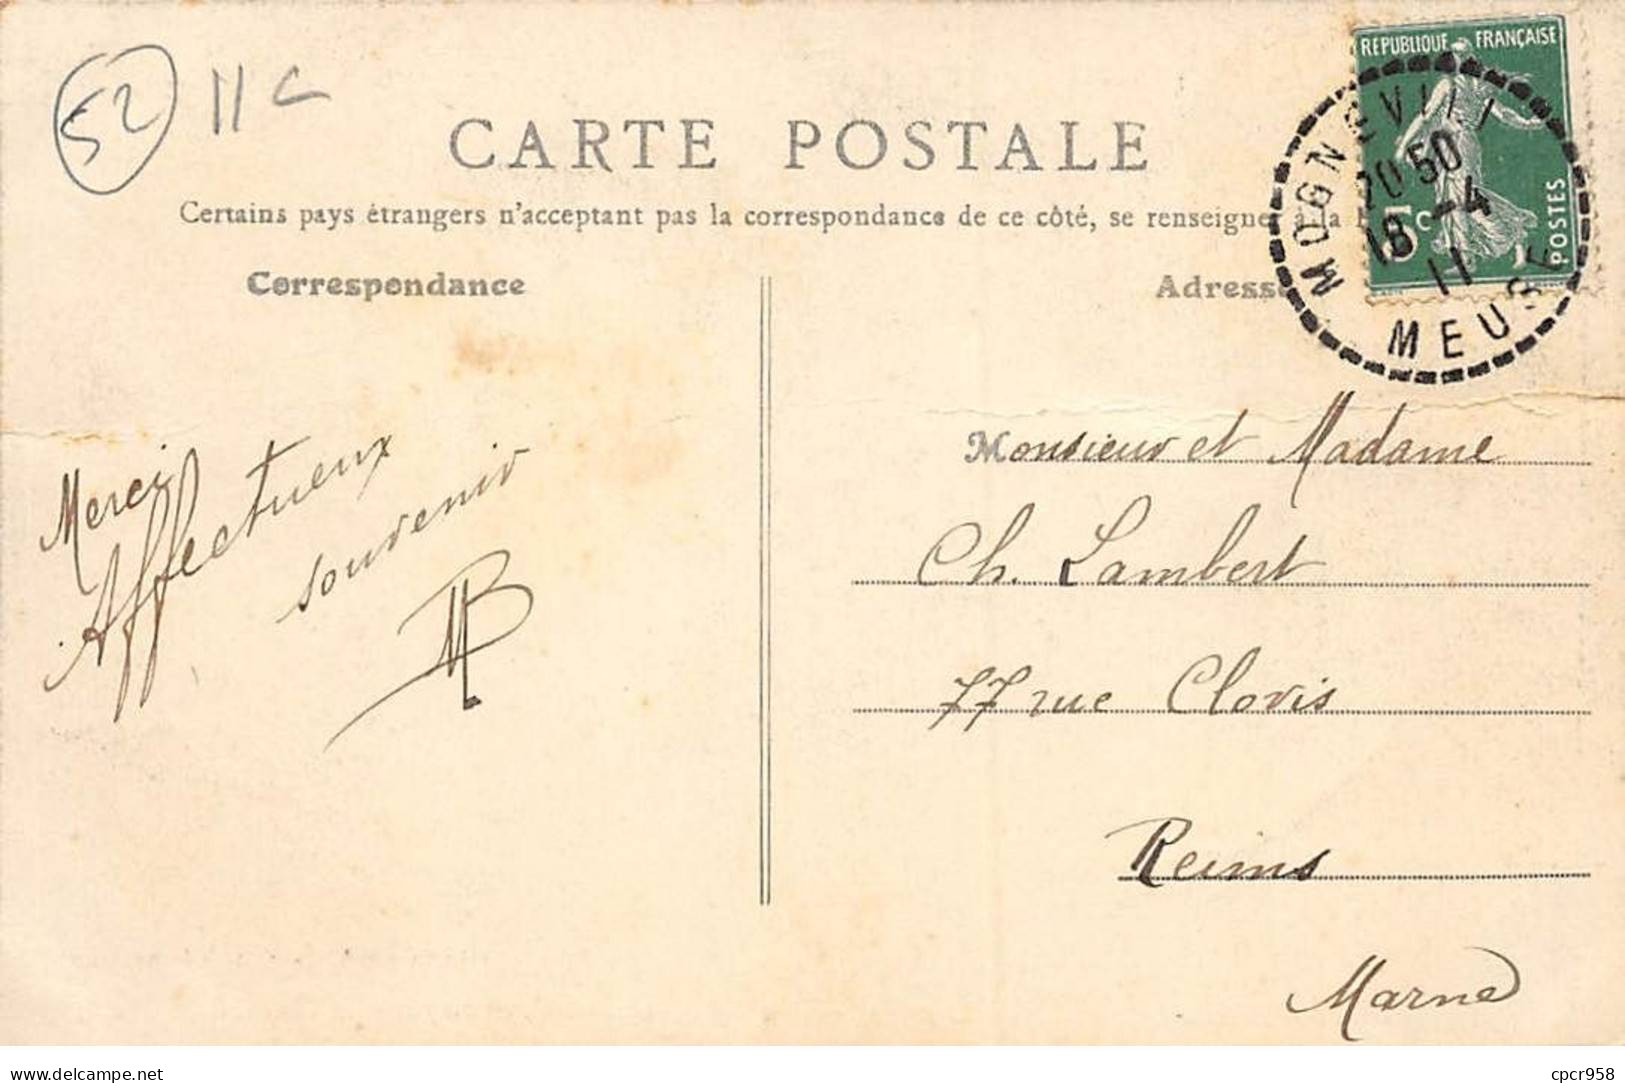 52 11c
RÉPUBLIQUE FRANÇAISE
CARTE POSTALE
MOGNEVILL
20 50
18 -4
11
MEUSE
5c
POSTES
Certains pays étrangers n'acceptant pas la correspondance de ce côté, se renseigner à la
Correspondance
Adresse
Merci
Affectueux
souvenir
MB
Monsieur et Madame
Ch. Lambert
77 rue Clovis
Reims
Marne
delcampe.net
cpcr958